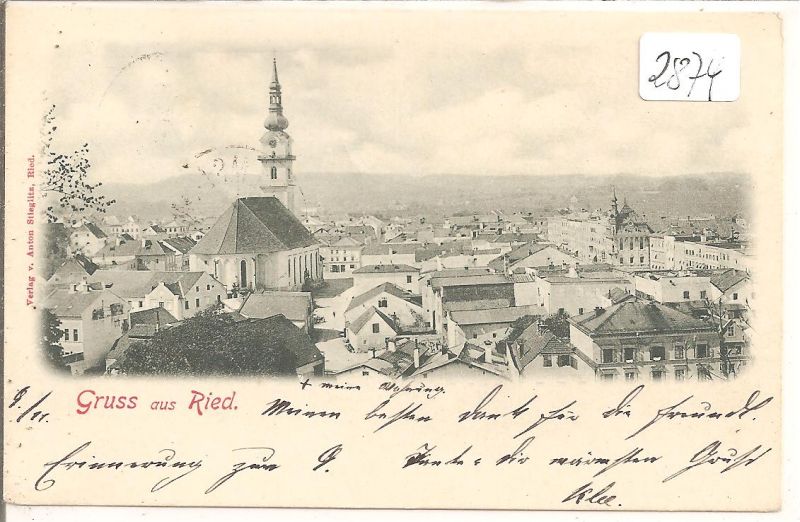 2874
Verlag v. Anton Stieglitz, Ried.
+ meine Wohnung.
9/11.
Gruss aus Ried.
Meinen besten Dank für die freundl.
Erinnerung zum 9. dir wärmsten Gruß
Klee.